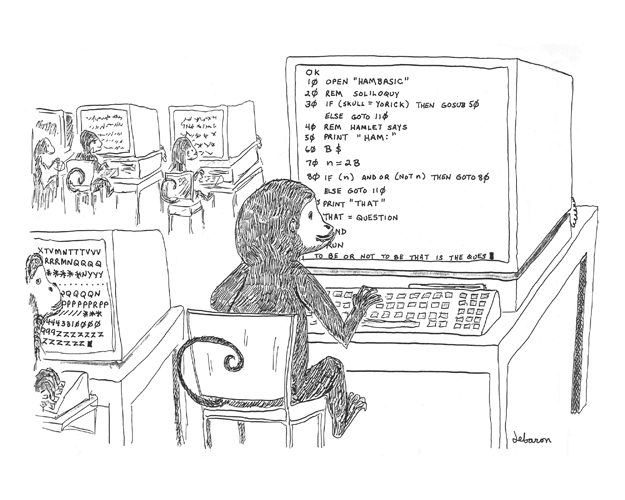 OK
10 OPEN "HAMBASIC"
20 REM SOLILOQUY
30 IF (SKULL = YORICK) THEN GOSUB 50
ELSE GOTO 110
40 REM HAMLET SAYS
50 PRINT "HAM:"
60 B $
70 n = 2B
80 IF (n) AND OR (NOT n) THEN GOTO 80
ELSE GOTO 110
PRINT "THAT"
THAT = QUESTION
RUN
TO BE OR NOT TO BE THAT IS THE QUES
XTVMNTTTVVV
RRRRMNQQQQ
NYYY
QQQQQN
ZZZZZZ
debaron